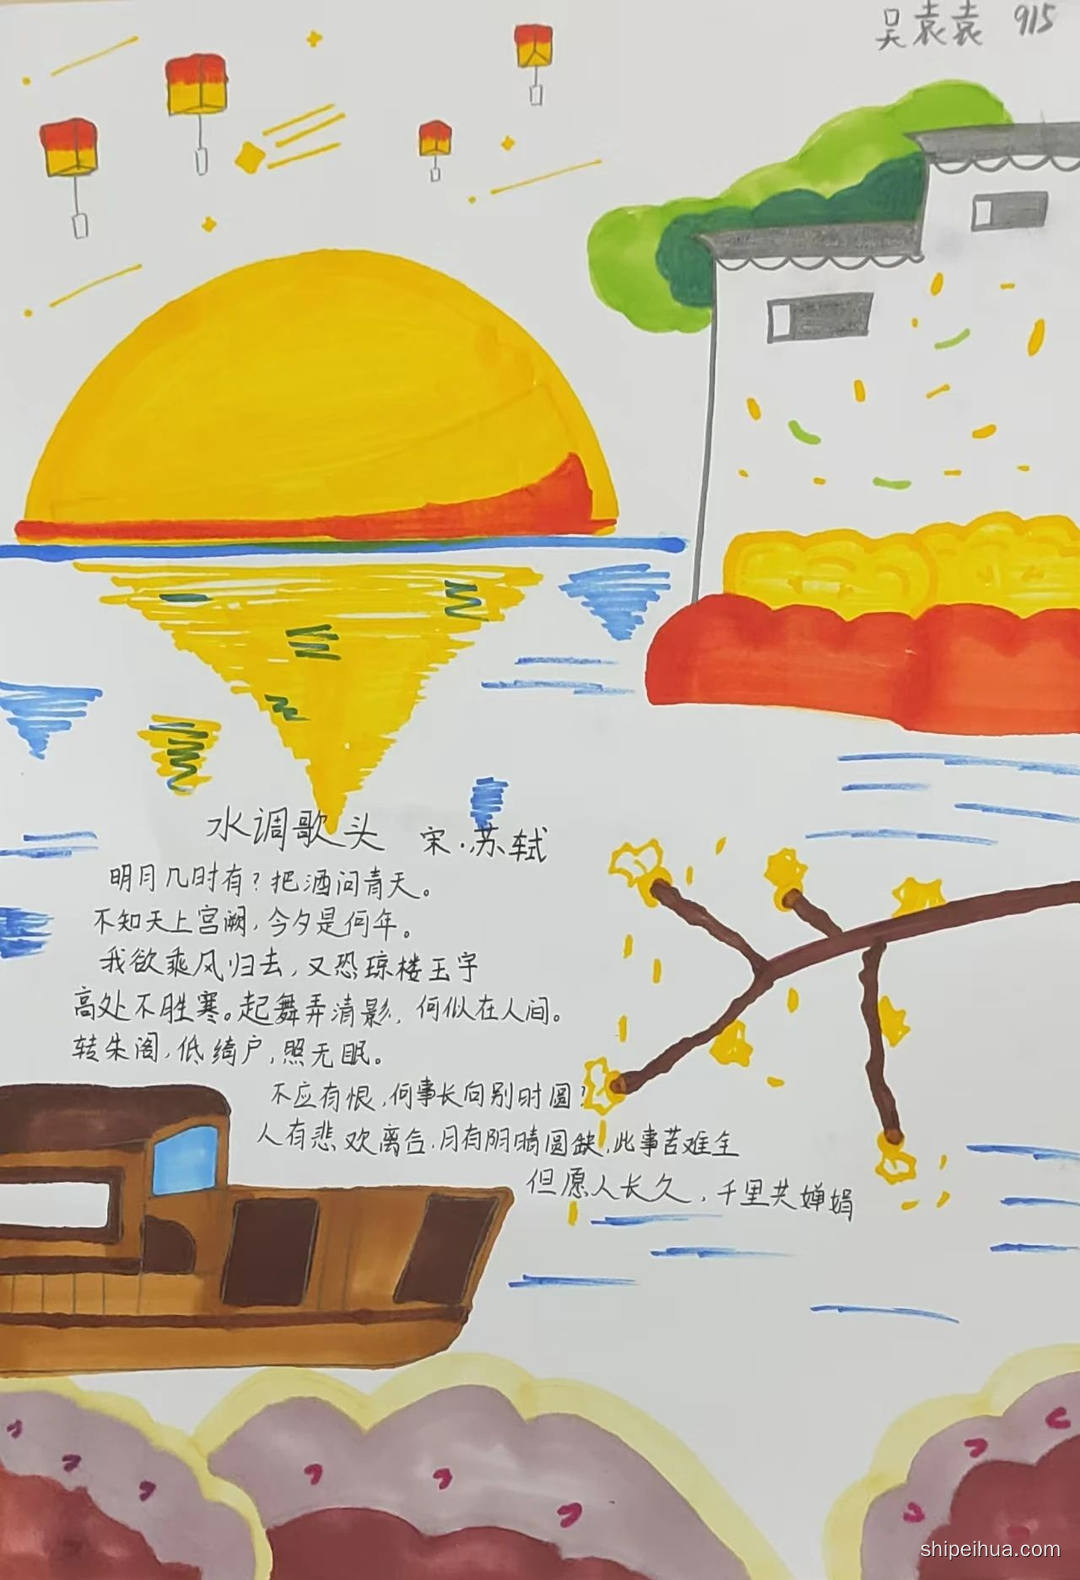 吴袁袁 915
水调歌头 宋·苏轼
明月几时有?把酒问青天。
不知天上宫阙,今夕是何年。
我欲乘风归去,又恐琼楼玉宇
高处不胜寒。起舞弄清影,何似在人间。
转朱阁,低绮户,照无眠。
不应有恨,何事长向别时圆?
人有悲欢离合.月有阴晴圆缺,此事苦难全
但愿人长久,千里共婵娟
shipeihua.com